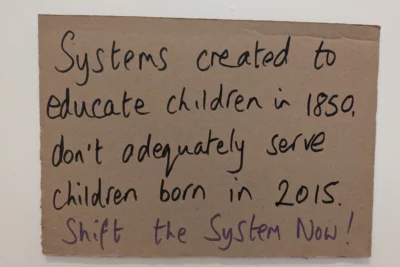 Systems created to
educate children in 1850,
don't adequately serve
children born in 2015.
Shift the System Now!